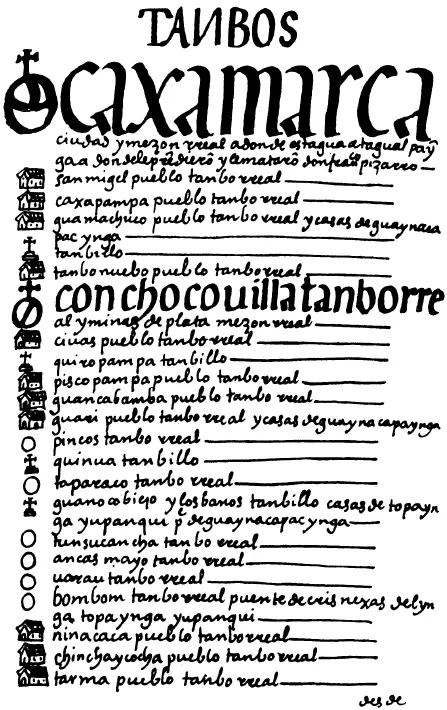 TANBOS
caxamarca
ciudad y mezon rreal adonde estaua atagualpa yn
ga a donde le prẽdierõ y le mataro don franco pizarro
san migel pueblo tanbo rreal
caxapampa pueblo tanbo rreal
guamachuco pueblo tanbo rreal y casas de guaynaca
pac ynga
tanbillo
tanbo nuebo pueblo tanbo rreal
conchoco uilla tanbo rre
al y minas de plata mezon rreal
ciuas pueblo tanbo rreal
quiropampa tanbillo
piscopampa pueblo tanbo rreal
guancabamba pueblo tanbo rreal
guari pueblo tanbo rreal y casas de guaynacapaynga
pincos tanbo rreal
quinua tanbillo
taparaco tanbo rreal
guanoco biejo y los banos tanbillo casas de topayn
ga yupanqui p̃ de guaynacapac ynga
tunsucancha tanbo rreal
ancas mayo tanbo rreal
uarau tanbo rreal
bombom tanbo rreal puente de cris nexas del yn
ga topa ynga yupanqui
ninacaca pueblo tanbo rreal
chinchaycocha pueblo tanbo rreal
tarma pueblo tanbo rreal
desde